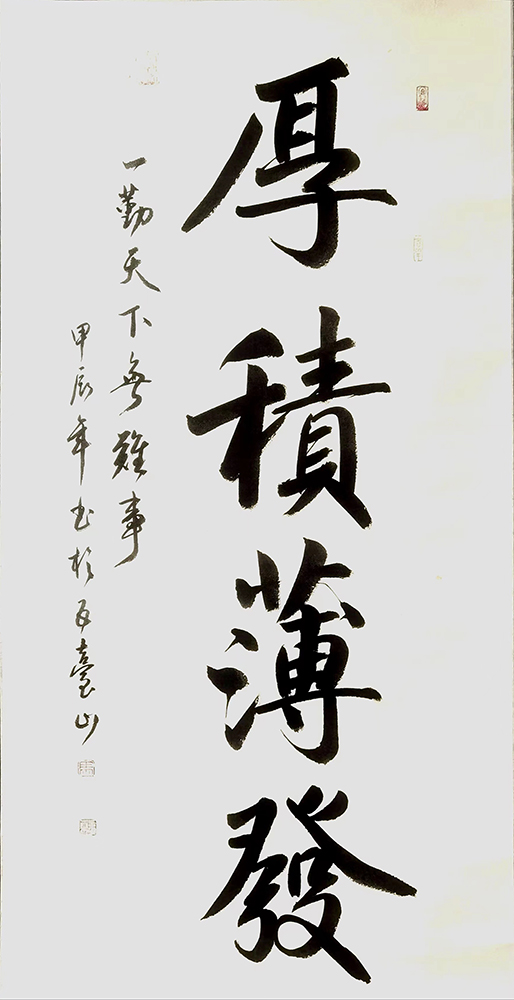 厚積薄發
一勤天下無難事
甲辰年书於五臺山